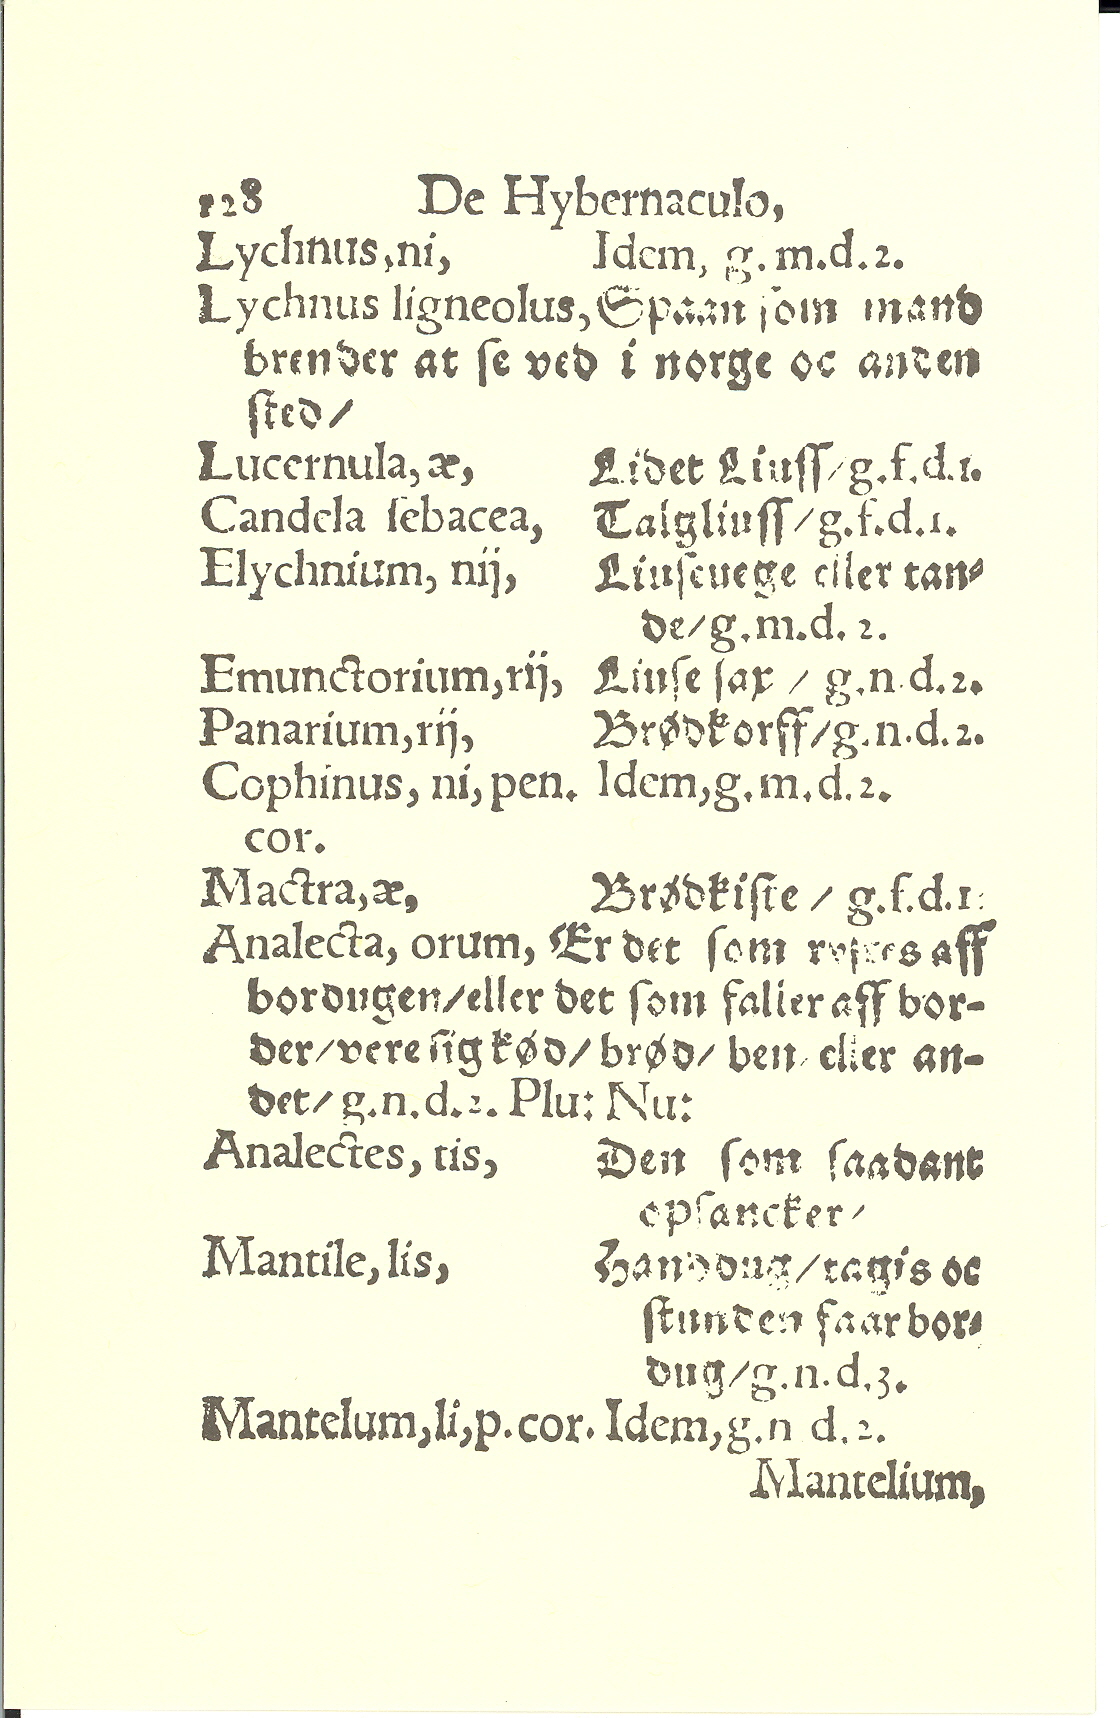 128 De Hybernaculo,
Lychnus, ni, Idem, g. m. d. 2.
Lychnus ligneolus, Spaan som mand
brender at se ved i norge oc anden
sted/
Lucernula, æ, Lidet Liuss/ g. f. d. 1.
Candela sebacea, Talgliuss/ g. f. d. 1.
Elychnium, nij, Liuseuege eller tan-
de/ g. m. d. 2.
Emunctorium, rij, Liuse sax / g. n. d. 2.
Panarium, rij, Brødkorff/ g. n. d. 2.
Cophinus, ni, pen. Idem, g. m. d. 2.
cor.
Mactra, æ, Brødkiste / g. f. d. 1.
Analecta, orum, Er det som aff
bordugen/ eller det som faller aff bor-
der/ vere sig kød/ brød/ ben/ eller an-
det/ g. n. d. 2. Plu: Nu:
Analectes, tis, Den som saadant
opsancker/
Mantile, lis, Handdug/ tagis oc
stunden faar bor-
dug/ g. n. d. 3.
Mantelum, li, p. cor. Idem, g. n d. 2.
Mantelium,